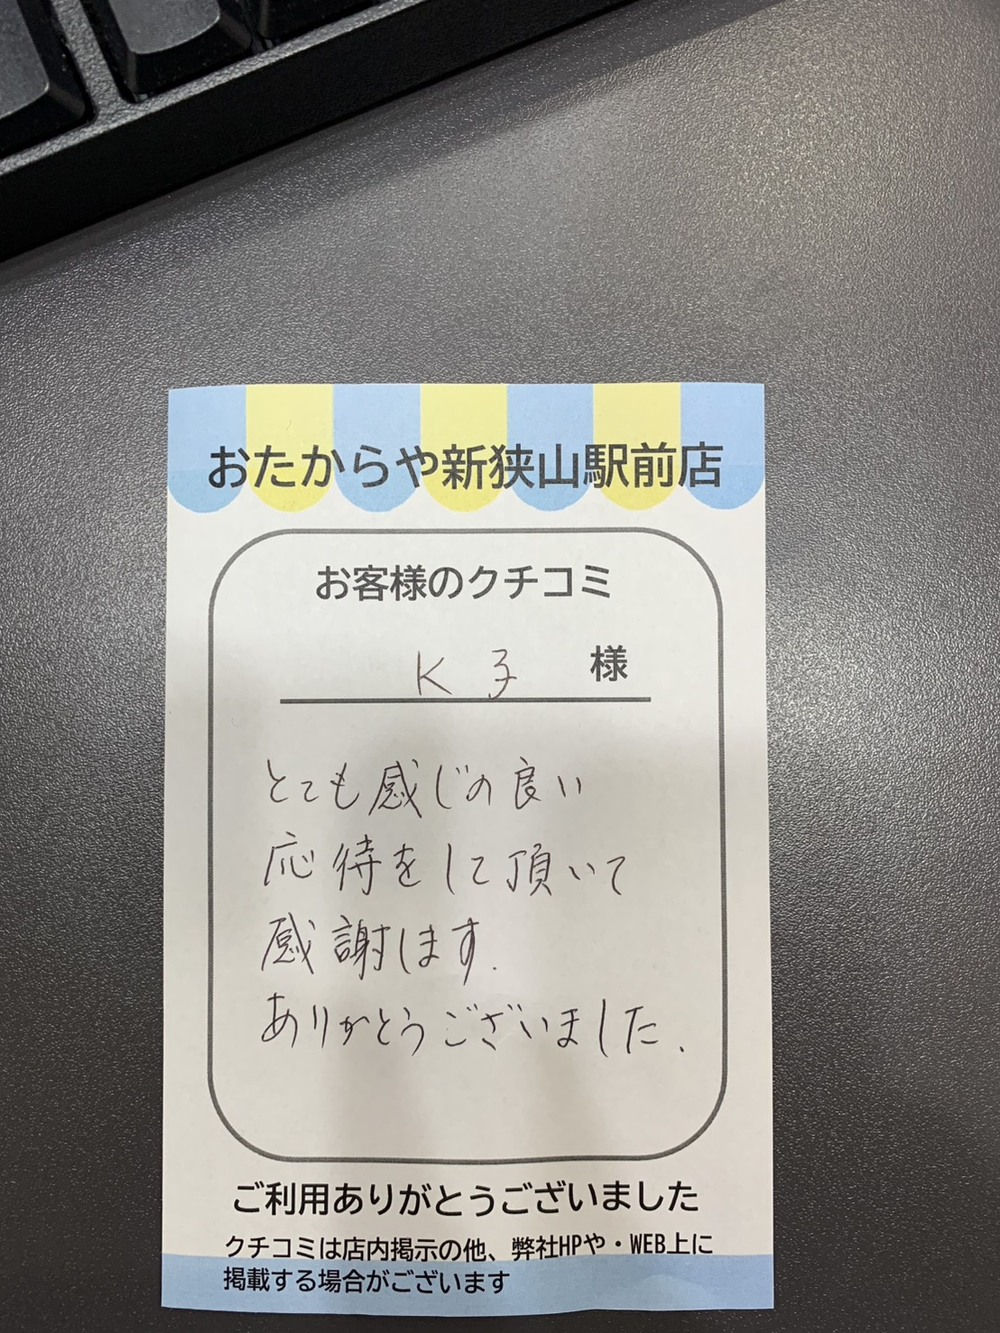 おたからや新狭山駅前店
お客様のクチコミ
K子 様
とても感じの良い
応待をして頂いて
感謝します.
ありがとうございました.
ご利用ありがとうございました
クチコミは店内掲示の他、弊社HPや・WEB上に
掲載する場合がございます